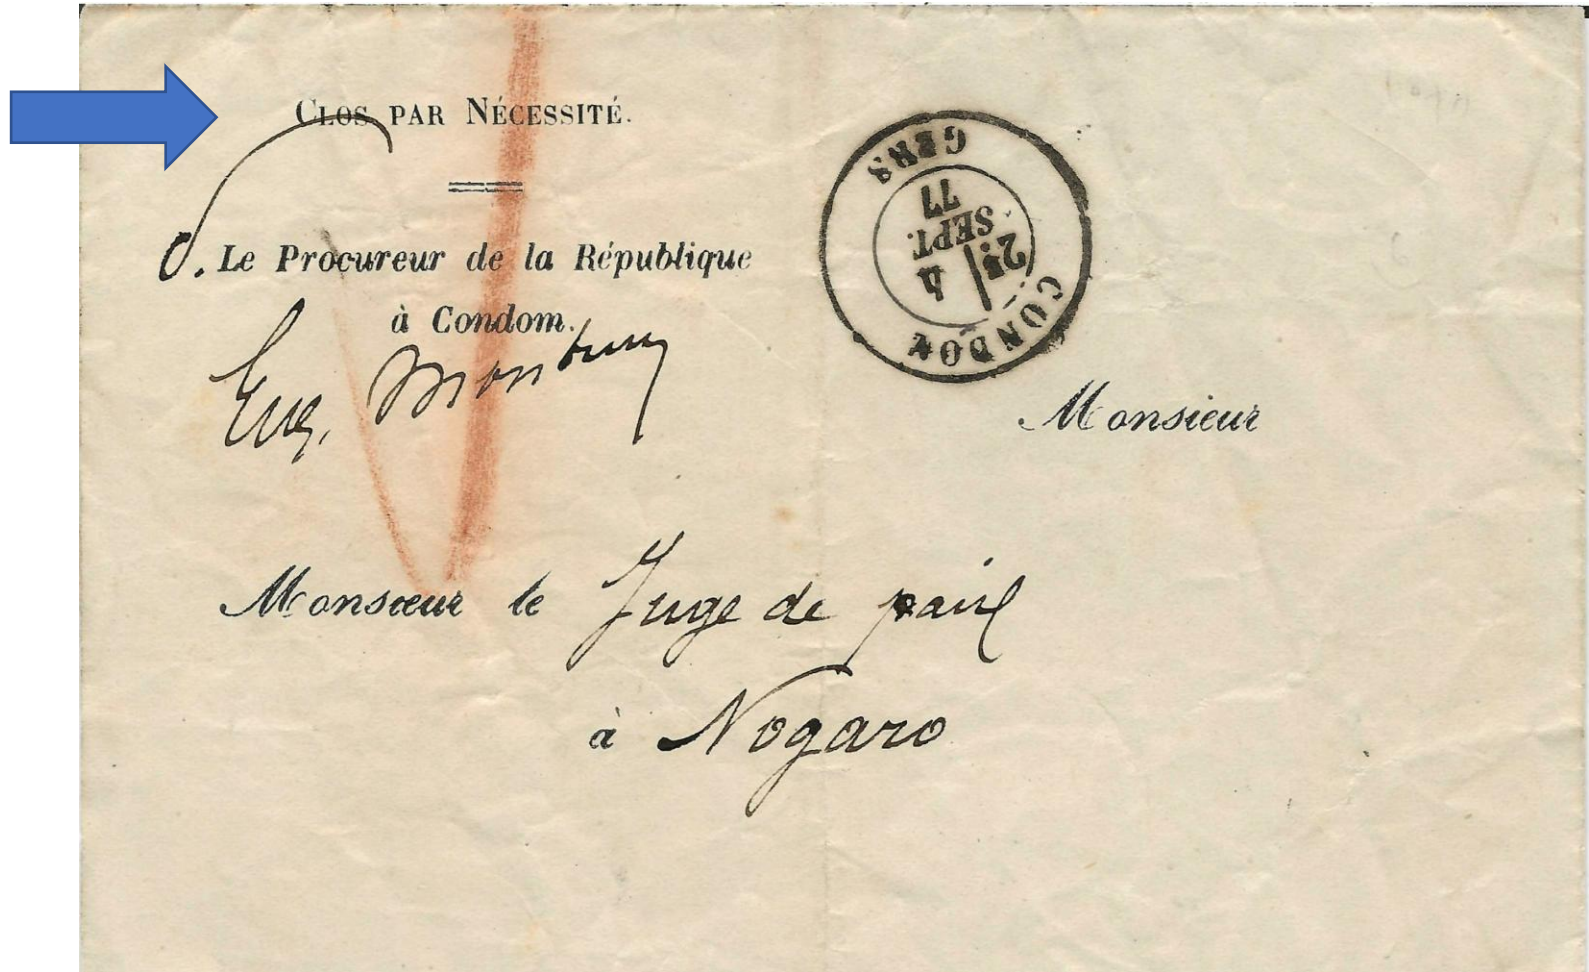 CLOS PAR NÉCESSITÉ.
Le Procureur de la République
à Condom.
CONDOM
2E
4
SEPT.
77
GERS
Monsieur
Monsieur le Juge de paix
à Nogaro